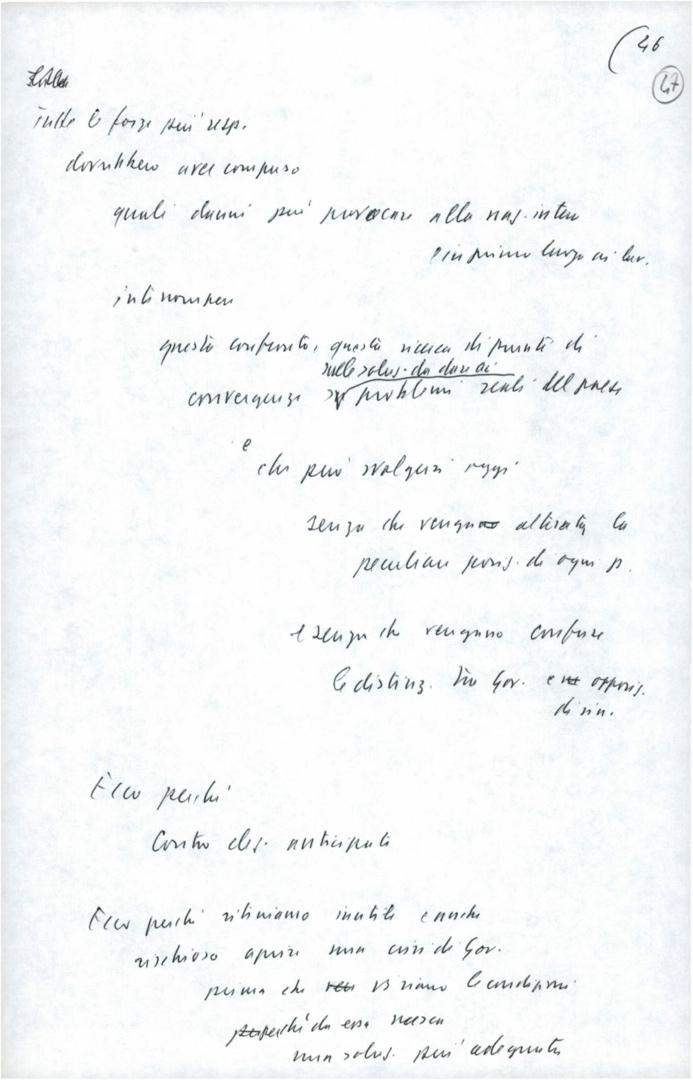 (46
47
tutte le forze più resp.
dovrebbero aver compreso
quali danni può provocare alla naz. intera
e in primo luogo ai lav.
interrompere
questo confronto, questa ricerca di punti di
sulle soluz. da dare ai
convergenza problemi reali del paese
e
che può svolgersi oggi
senza che venga alterata la
peculiare posiz. di ogni p.
e senza che vengano confuse
le distinz. tra Gov. e opposiz.
di sin.
Ecco perché
Contro elez. anticipate
Ecco perché riteniamo inutile e anche
rischioso aprire una crisi di Gov.
prima che vi siano le condizioni
perché da essa nasca
una soluz. più adeguata